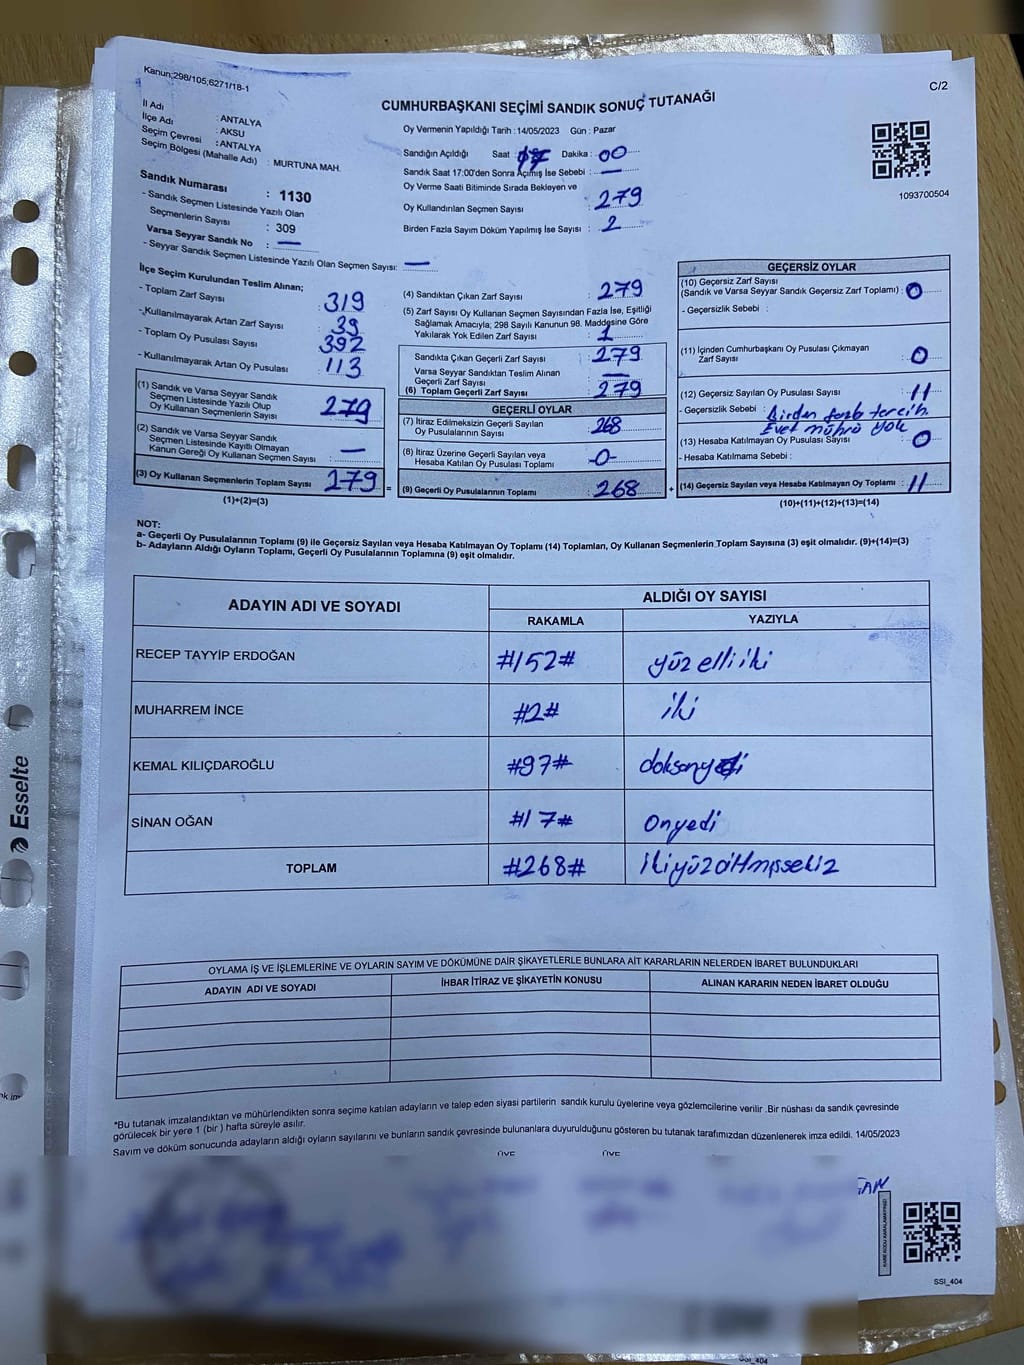 Kanun;298/105;6271/18-1
C/2
CUMHURBAŞKANI SEÇİMİ SANDIK SONUÇ TUTANAĞI
İl Adı : ANTALYA
İlçe Adı : AKSU
Seçim Çevresi : ANTALYA
Seçim Bölgesi (Mahalle Adı) : MURTUNA MAH.
Sandık Numarası : 1130
- Sandık Seçmen Listesinde Yazılı Olan
Seçmenlerin Sayısı : 309
Varsa Seyyar Sandık No : —
- Seyyar Sandık Seçmen Listesinde Yazılı Olan Seçmen Sayısı: —
Oy Vermenin Yapıldığı Tarih : 14/05/2023 Gün : Pazar
Sandığın Açıldığı Saat : 17 Dakika : 00
Sandık Saat 17:00'den Sonra Açılmış İse Sebebi : —
Oy Verme Saati Bitiminde Sırada Bekleyen ve
Oy Kullandırılan Seçmen Sayısı : 279
Birden Fazla Sayım Döküm Yapılmış İse Sayısı : 2
1093700504
İlçe Seçim Kurulundan Teslim Alınan;
- Toplam Zarf Sayısı : 319
- Kullanılmayarak Artan Zarf Sayısı : 39
- Toplam Oy Pusulası Sayısı : 392
- Kullanılmayarak Artan Oy Pusulası : 113
(1) Sandık ve Varsa Seyyar Sandık
Seçmen Listesinde Yazılı Olup
Oy Kullanan Seçmenlerin Sayısı : 279
(2) Sandık ve Varsa Seyyar Sandık
Seçmen Listesinde Kayıtlı Olmayan
Kanun Gereği Oy Kullanan Seçmen Sayısı : —
(3) Oy Kullanan Seçmenlerin Toplam Sayısı : 279
(1)+(2)=(3)
(4) Sandıktan Çıkan Zarf Sayısı : 279
(5) Zarf Sayısı Oy Kullanan Seçmen Sayısından Fazla İse, Eşitliği
Sağlamak Amacıyla; 298 Sayılı Kanunun 98. Maddesine Göre
Yakılarak Yok Edilen Zarf Sayısı : 1
Sandıkta Çıkan Geçerli Zarf Sayısı : 279
Varsa Seyyar Sandıktan Teslim Alınan
Geçerli Zarf Sayısı : —
(6) Toplam Geçerli Zarf Sayısı : 279
GEÇERLİ OYLAR
(7) İtiraz Edilmeksizin Geçerli Sayılan
Oy Pusulalarının Sayısı : 268
(8) İtiraz Üzerine Geçerli Sayılan veya
Hesaba Katılan Oy Pusulası Toplamı : -0-
= (9) Geçerli Oy Pusulalarının Toplamı : 268
GEÇERSİZ OYLAR
(10) Geçersiz Zarf Sayısı
(Sandık ve Varsa Seyyar Sandık Geçersiz Zarf Toplamı) : 0
- Geçersizlik Sebebi :
(11) İçinden Cumhurbaşkanı Oy Pusulası Çıkmayan
Zarf Sayısı : 0
(12) Geçersiz Sayılan Oy Pusulası Sayısı : 11
- Geçersizlik Sebebi : Birden fazla tercih.
Evet mührü yok
(13) Hesaba Katılmayan Oy Pusulası Sayısı : 0
- Hesaba Katılmama Sebebi :
+ (14) Geçersiz Sayılan veya Hesaba Katılmayan Oy Toplamı : 11
(10)+(11)+(12)+(13)=(14)
NOT:
a- Geçerli Oy Pusulalarının Toplamı (9) ile Geçersiz Sayılan veya Hesaba Katılmayan Oy Toplamı (14) Toplamları, Oy Kullanan Seçmenlerin Toplam Sayısına (3) eşit olmalıdır. (9)+(14)=(3)
b- Adayların Aldığı Oyların Toplamı, Geçerli Oy Pusulalarının Toplamına (9) eşit olmalıdır.
ADAYIN ADI VE SOYADI ALDIĞI OY SAYISI
RAKAMLA YAZIYLA
RECEP TAYYİP ERDOĞAN #152# yüz elli iki
MUHARREM İNCE #2# iki
KEMAL KILIÇDAROĞLU #97# doksanyedi
SİNAN OĞAN #17# Onyedi
TOPLAM #268# ikiyüzaltmışsekiz
OYLAMA İŞ VE İŞLEMLERİNE VE OYLARIN SAYIM VE DÖKÜMÜNE DAİR ŞİKAYETLERLE BUNLARA AİT KARARLARIN NELERDEN İBARET BULUNDUKLARI
ADAYIN ADI VE SOYADI İHBAR İTİRAZ VE ŞİKAYETİN KONUSU ALINAN KARARIN NEDEN İBARET OLDUĞU
*Bu tutanak imzalandıktan ve mühürlendikten sonra seçime katılan adayların ve talep eden siyasi partilerin sandık kurulu üyelerine veya gözlemcilerine verilir .Bir nüshası da sandık çevresinde
görülecek bir yere 1 (bir ) hafta süreyle asılır.
Sayım ve döküm sonucunda adayların aldığı oyların sayılarını ve bunların sandık çevresinde bulunanlara duyurulduğunu gösteren bu tutanak tarafımızdan düzenlenerek imza edildi. 14/05/2023
ÜYE ÜYE
KARE KODU KARALAMAYINIZ!
SSİ_404
Esselte